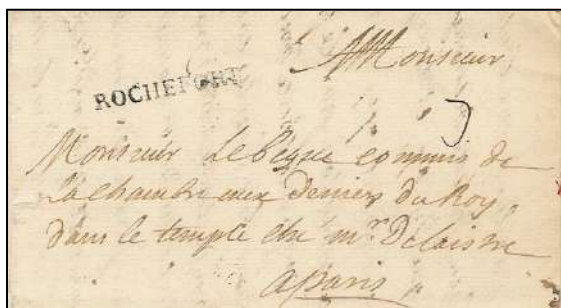 A Monsieur
ROCHEFORT
Monsieur Lebegue commis de
La chambre aux deniers du Roy
dans le temple che mr. Delaistre
a paris